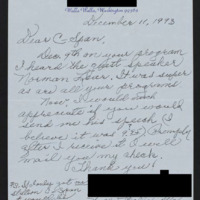 Walla Walla, Washington 99362
December 11, 1993
Dear C-Span,
Dec 9th on your program
I heard the guest speaker
Norman. It was super
as are all your programs
Now, I would
appreciate if you would
send me his speech (I
believe it was) Promptly
after I receive it I will
mail you my check.
Thank you!